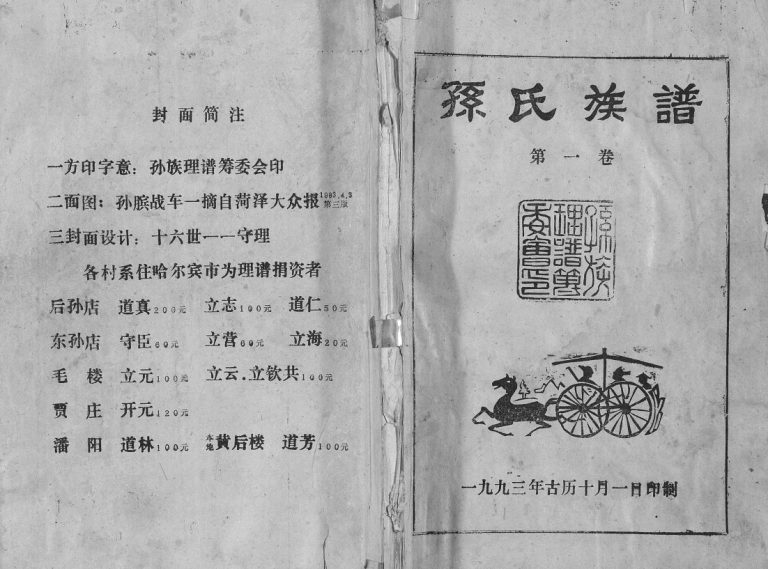 封面简注
一方印字意：孙族理谱筹委会印
二面图：孙膑战车一摘自菏泽大众报1993.4.3第三版
三封面设计：十六世一一守理
各村系住哈尔宾市为理谱捐资者
后孙店 道真200元 立志100元 道仁50元
东孙店 守臣60元 立营60元 立海20元
毛楼 立元100元 立云.立钦共100元
贾庄 开元120元
潘阳 道林100元 本地黄后楼 道芳100元
孫氏族譜
第一卷
孫族理譜籌委會印
一九九三年古历十月一日印制